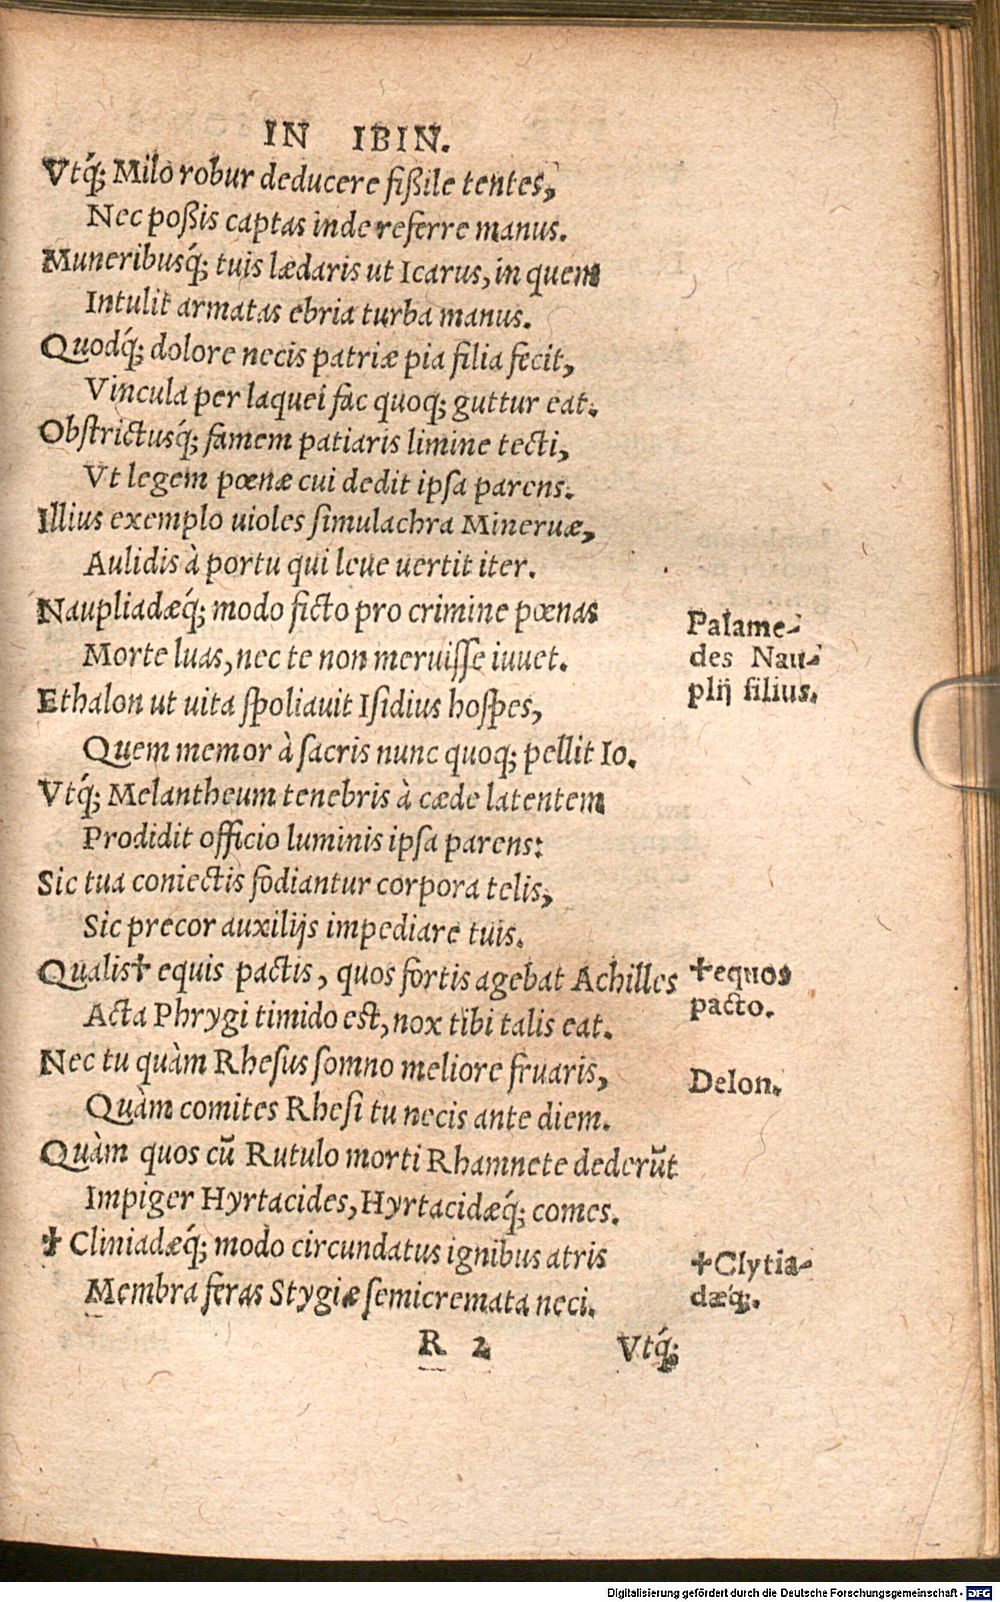 IN IBIN.
Vtq́; Milo robur deducere fißile tentes,
Nec poßis captas inde referre manus.
Muneribusq́; tuis lædaris ut Icarus, in quem
Intulit armatas ebria turba manus.
Quodq́; dolore necis patriæ pia filia fecit,
Vincula per laquei fac quoq; guttur eat.
Obstrictusq́; famem patiaris limine tecti,
Vt legem pœnæ cui dedit ipsa parens.
Illius exemplo uioles simulachra Mineruæ,
Aulidis à portu qui leue uertit iter.
Naupliadæq́; modo ficto pro crimine pœnas
Morte luas, nec te non meruisse iuuet.
Palame-
des Nau-
plij filius.
Ethalon ut uita spoliauit Isidius hospes,
Quem memor à sacris nunc quoq; pellit Io.
Vtq́; Melantheum tenebris à cæde latentem
Prodidit officio luminis ipsa parens:
Sic tua coniectis fodiantur corpora telis,
Sic precor auxilijs impediare tuis.
Qualis✝ equis pactis, quos fortis agebat Achilles
✝equos
pacto.
Acta Phrygi timido est, nox tibi talis eat.
Nec tu quàm Rhesus somno meliore fruaris,
Delon.
Quàm comites Rhesi tu necis ante diem.
Quàm quos cū Rutulo morti Rhamnete dederūt
Impiger Hyrtacides, Hyrtacidæq́; comes.
✝ Cliniadæq́; modo circundatus ignibus atris
✝Clytia-
dæq́;.
Membra feras Stygiæ semicremata neci.
R 2
Vtq́;
Digitalisierung gefördert durch die Deutsche Forschungsgemeinschaft - DFG